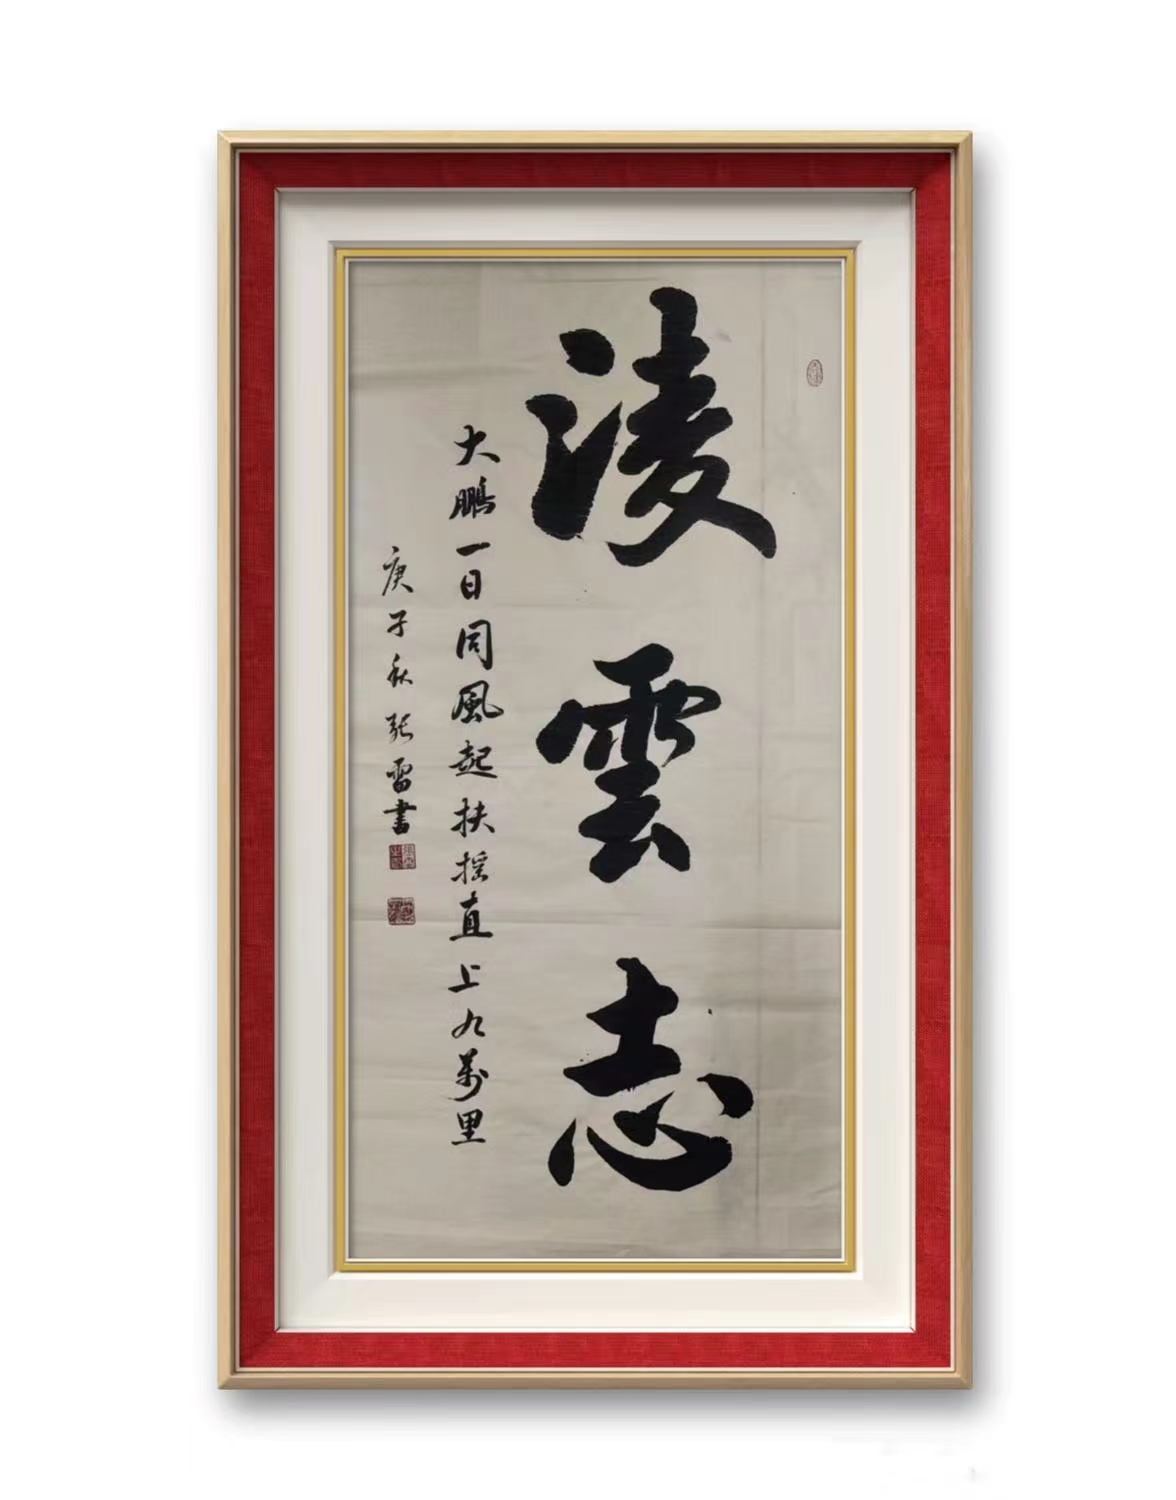 凌雲志
大鵬一日同風起扶摇直上九萬里
庚子秋張雷書